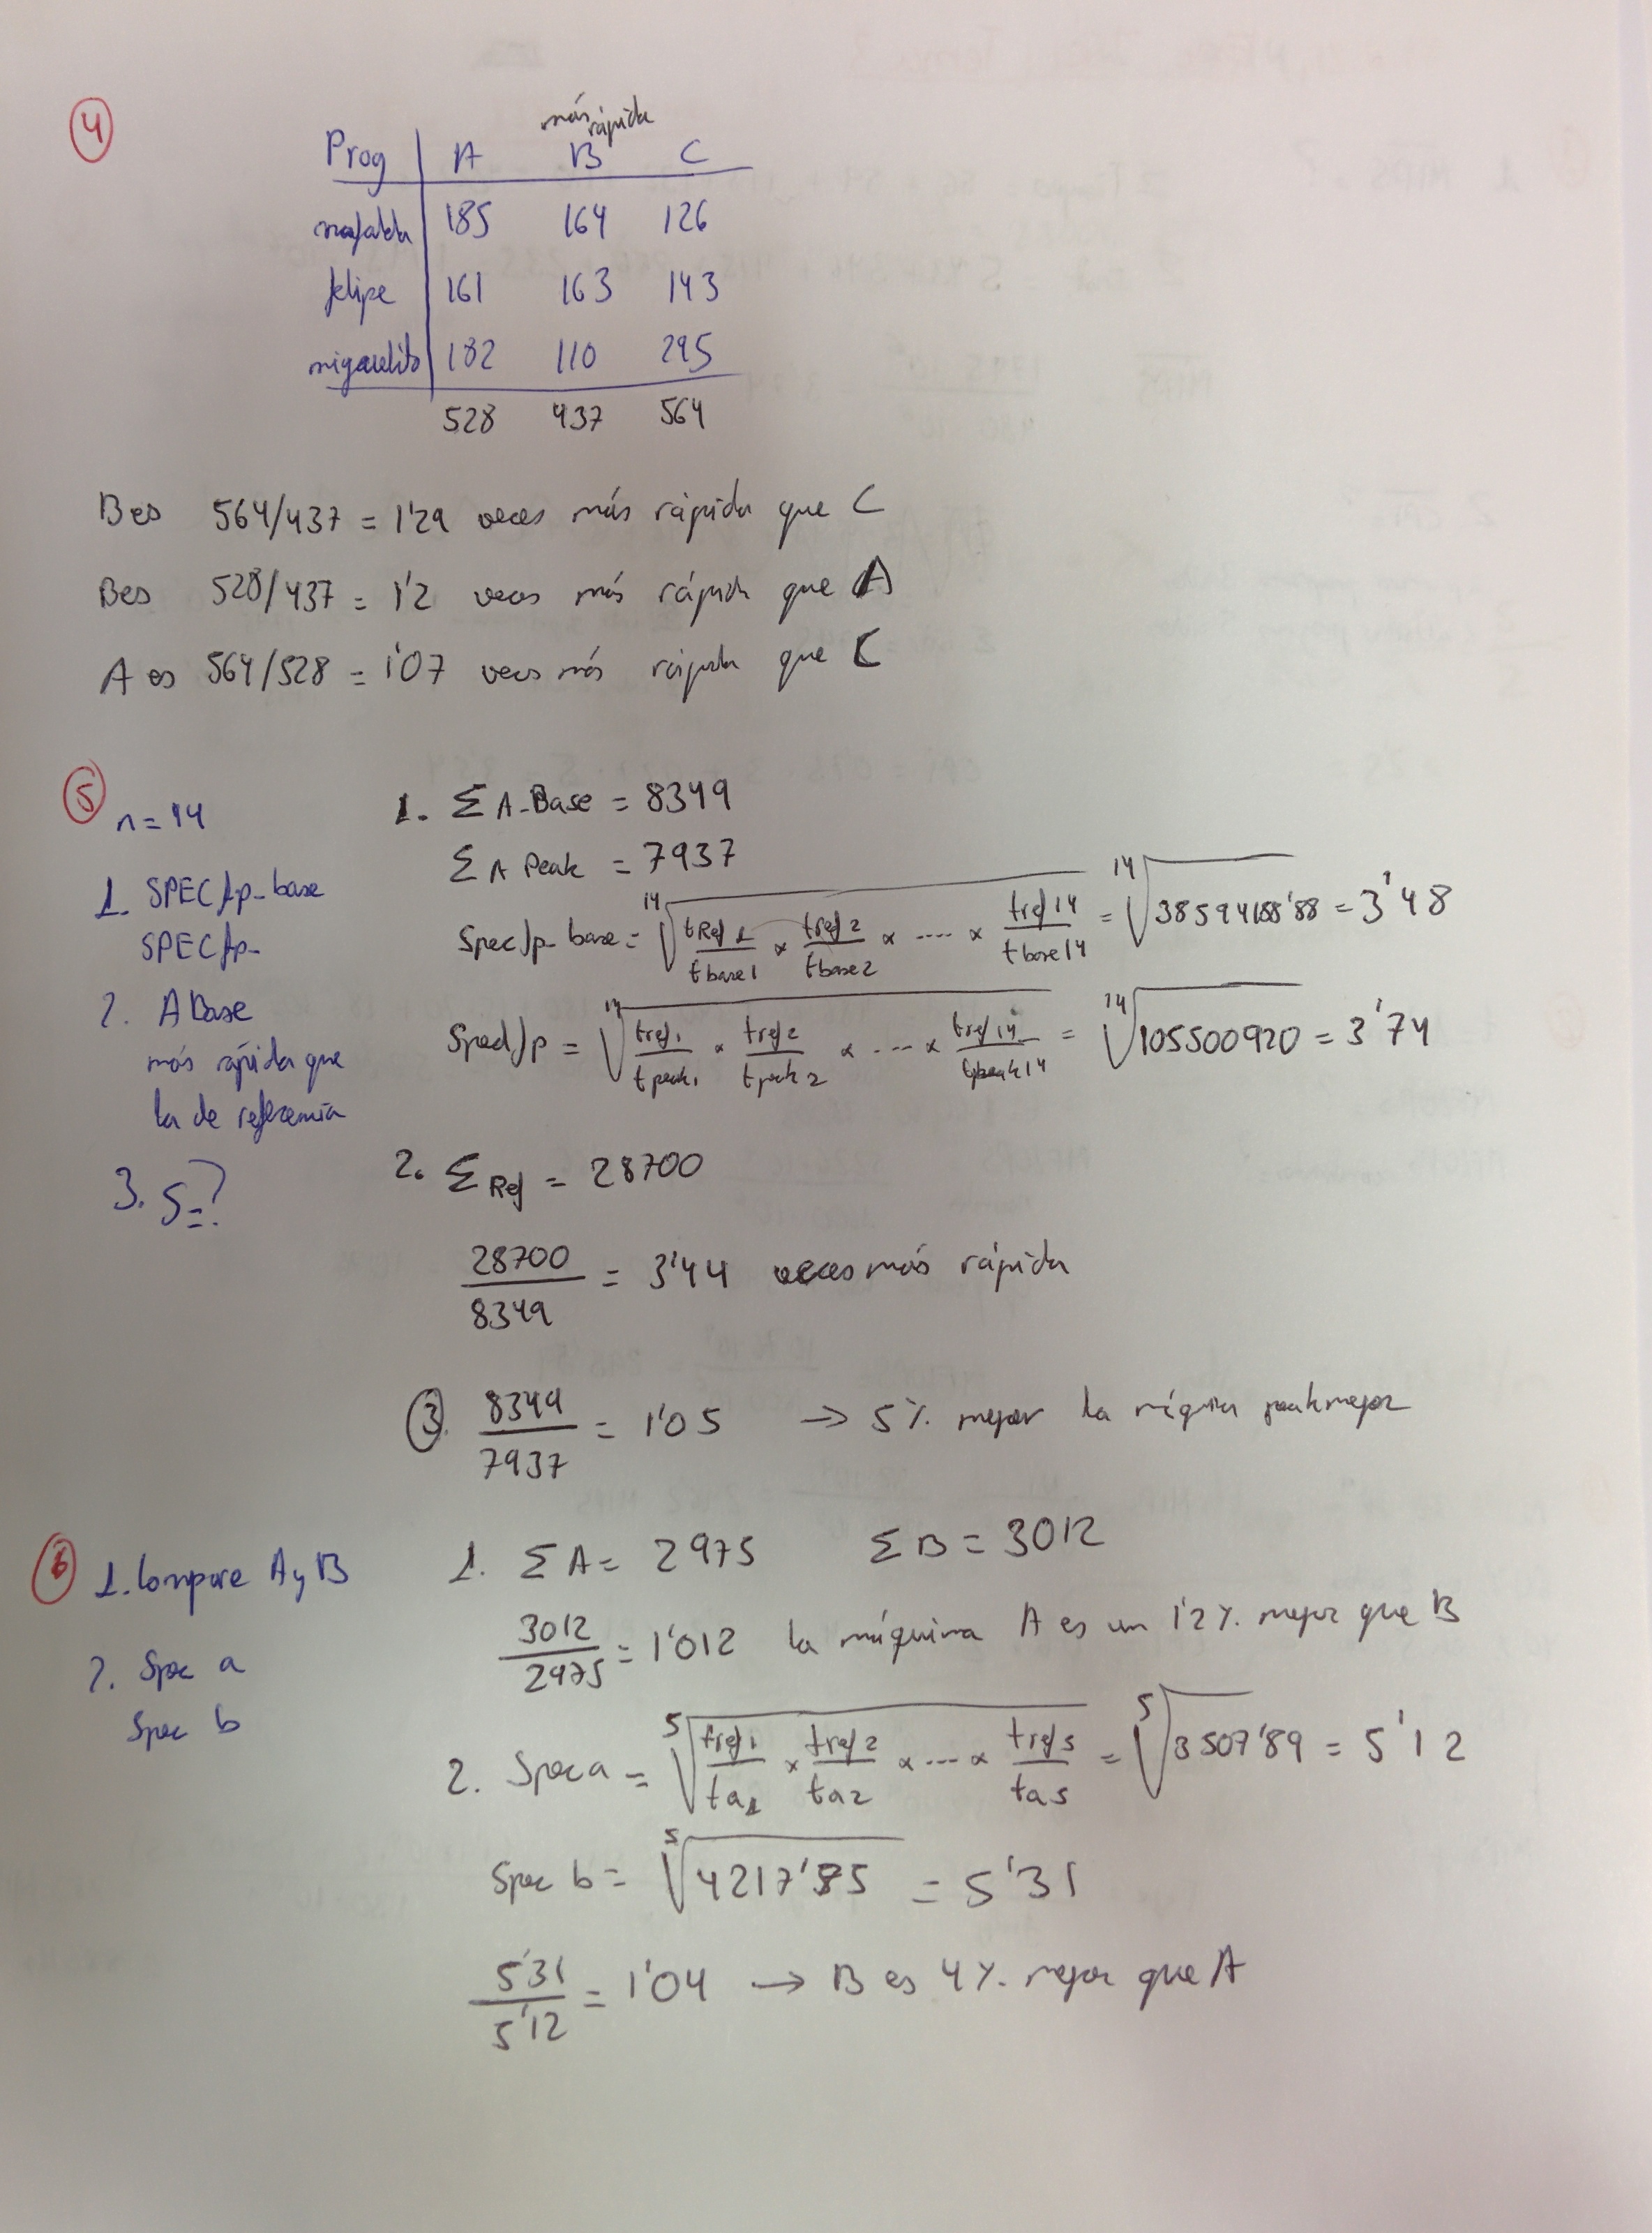 4
más rápida
Prog A B C
mafalda 185 164 126
felipe 161 163 143
miguelito 182 110 295
528 437 564
B es 564/437 = 1'29 veces más rápida que C
B es 528/437 = 1'2 veces más rápida que A
A es 564/528 = 1'07 veces más rápida que C
5
n = 14
1. SPECfp_base
SPECfp_
2. A Base
más rápida que
la de referencia
3. S=?
1. Σ A_Base = 8349
Σ A Peak = 7937
Specfp_base = ¹⁴√(tRef1/tbase1 × tref2/tbase2 × .... × tref14/tbase14) = ¹⁴√38594188'88 = 3'48
Specfp = ¹⁴√(tref1/tpeak1 × tref2/tpeak2 × .... × tref14/tpeak14) = ¹⁴√105500920 = 3'74
2. Σ Ref = 28700
28700/8349 = 3'44 veces más rápida
3. 8349/7937 = 1'05 → 5% mejor la máquina peak mejor
6
1. Compare A y B
2. Spec a
Spec b
1. Σ A = 2975 Σ B = 3012
3012/2975 = 1'012 la máquina A es un 1'2%. mejor que B
2. Spec a = ⁵√(tref1/ta1 × tref2/ta2 × .... × tref5/ta5) = ⁵√3507'89 = 5'12
Spec b = ⁵√4217'85 = 5'31
5'31/5'12 = 1'04 → B es 4%. mejor que A